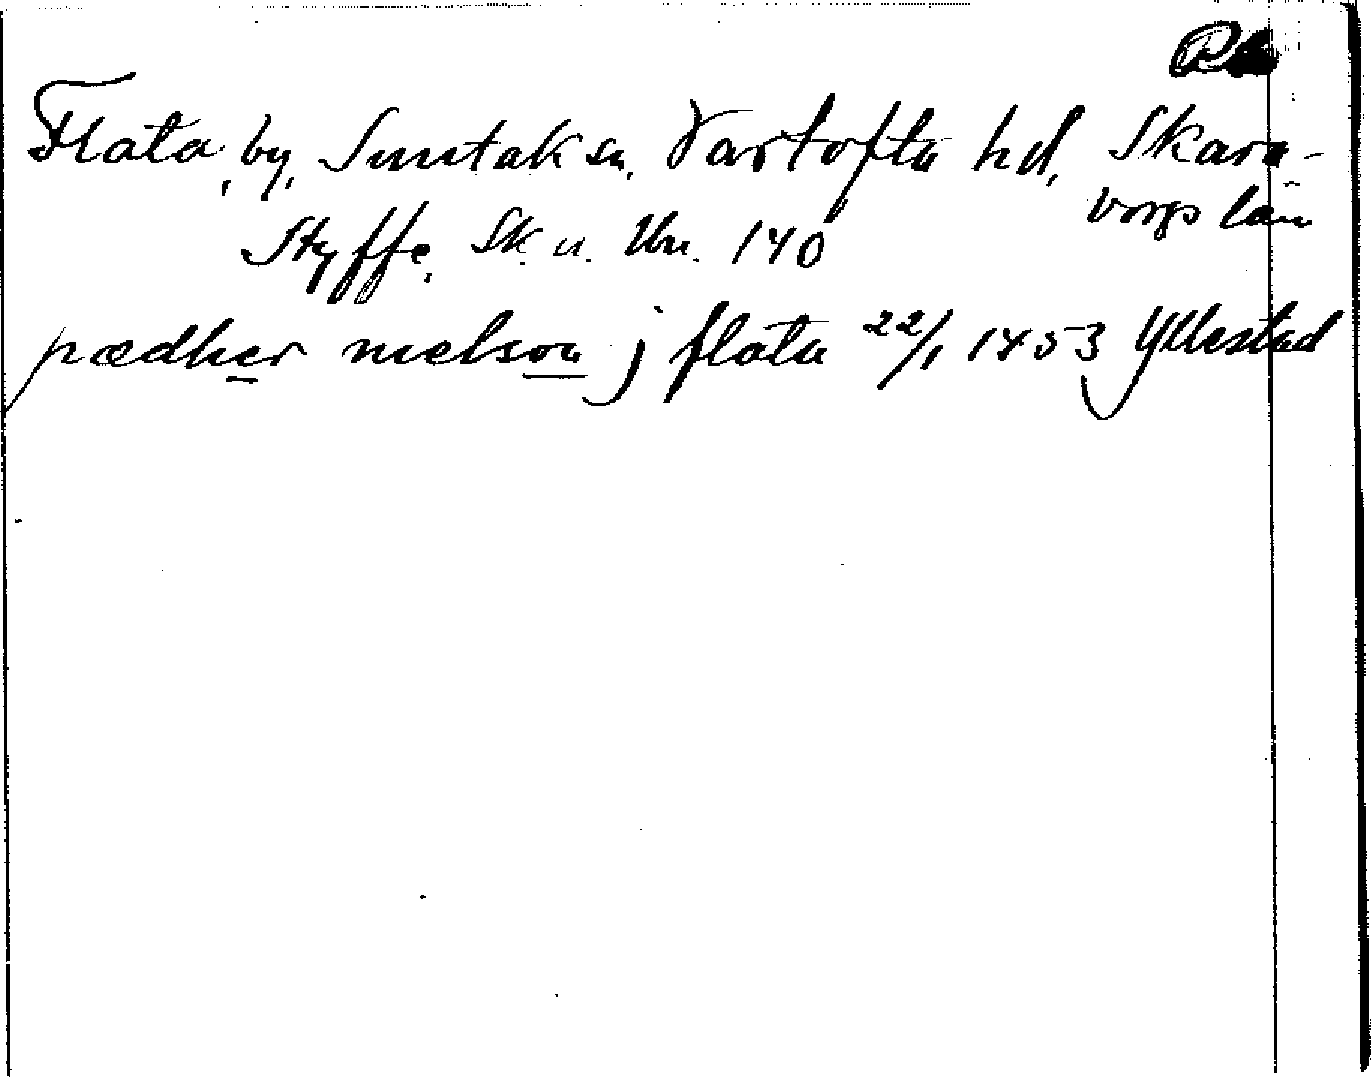 Flata, by, Suntak sn, Vartofta hd, Skara-
borgs län
Styffe, Sk. u. Un. 140
pædher nielson j flata 22/1 1453 Yllestad